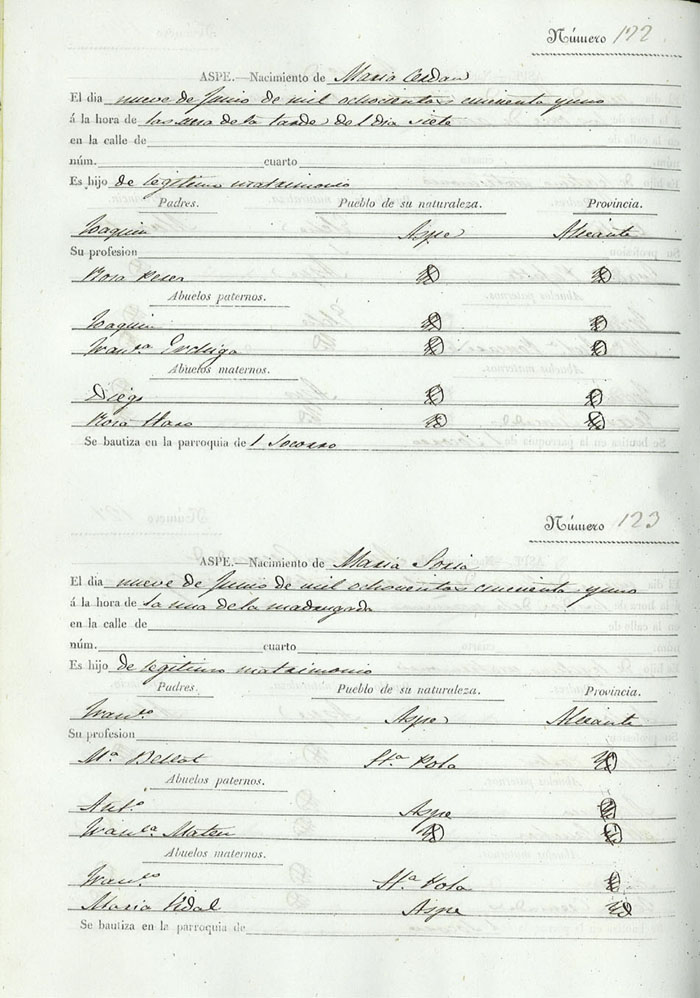 Número 122
ASPE.—Nacimiento de Maria Cerdan
El dia nueve de Junio de mil ochocientos cincuenta y uno
á la hora de las de la tarde del dia siete
en la calle de
núm. cuarto
Es hijo de legitimo matrimonio
Padres. Pueblo de su naturaleza. Provincia.
Joaquin Aspe Alicante
Su profesion
Rosa
Abuelos paternos.
Joaquin
Franca
Abuelos maternos.
Diego
Rosa
Se bautiza en la parroquia de l Socorro
Número 123
ASPE.—Nacimiento de Maria Soria
El dia nueve de Junio de mil ochocientos cincuenta y uno
á la hora de la una de la madrugada
en la calle de
núm. cuarto
Es hijo de legitimo matrimonio
Padres. Pueblo de su naturaleza. Provincia.
Franco Aspe Alicante
Su profesion
Ma Sta Pola
Abuelos paternos.
Anto Aspe
Franca Mateu
Abuelos maternos.
Franco Sta Pola
Maria Vidal Aspe
Se bautiza en la parroquia de